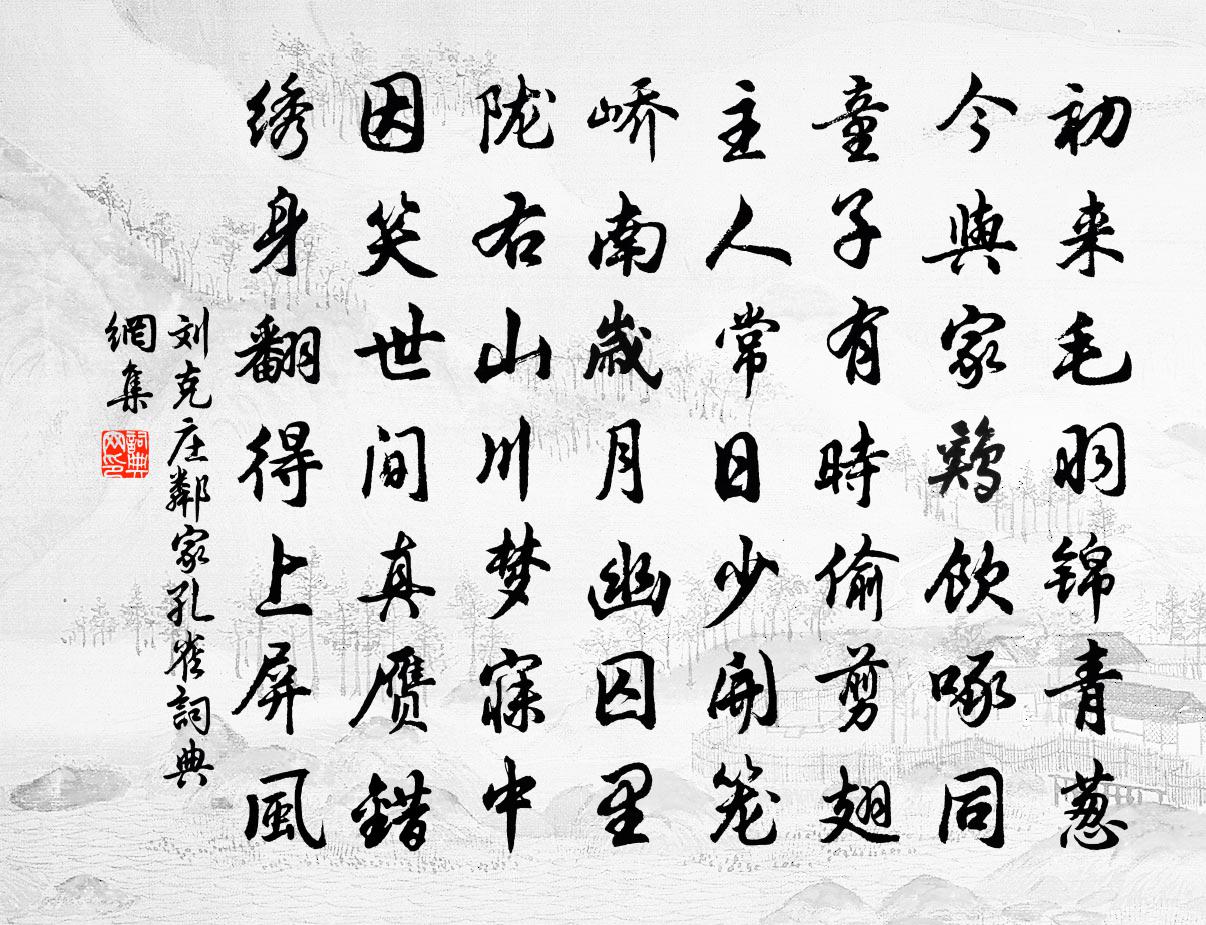 初来毛羽锦青葱
今與家鶏飲啄同
童子有時偷剪翅
主人常日少開笼
峤南歳月幽囚里
陇右山川梦寐中
因笑世间真赝錯
绣身翻得上屏風
刘克庄鄰家孔雀詞典
網集
詞典
网印